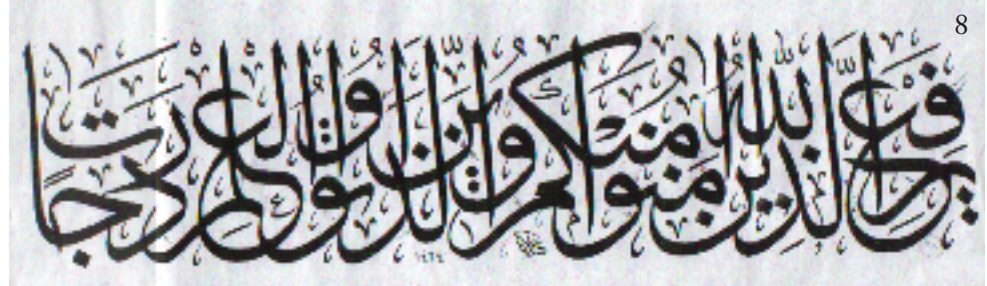 8
يرفع الله الذين آمنوا منكم والذين أوتوا العلم درجات